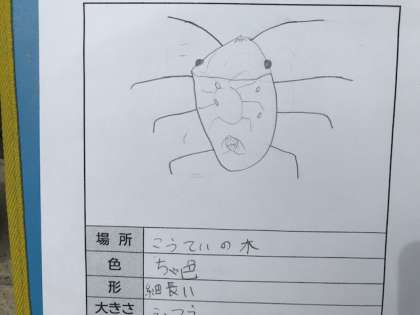 場所 こうていの木
色 ちゃ色
形 細長い
大きさ ふつう